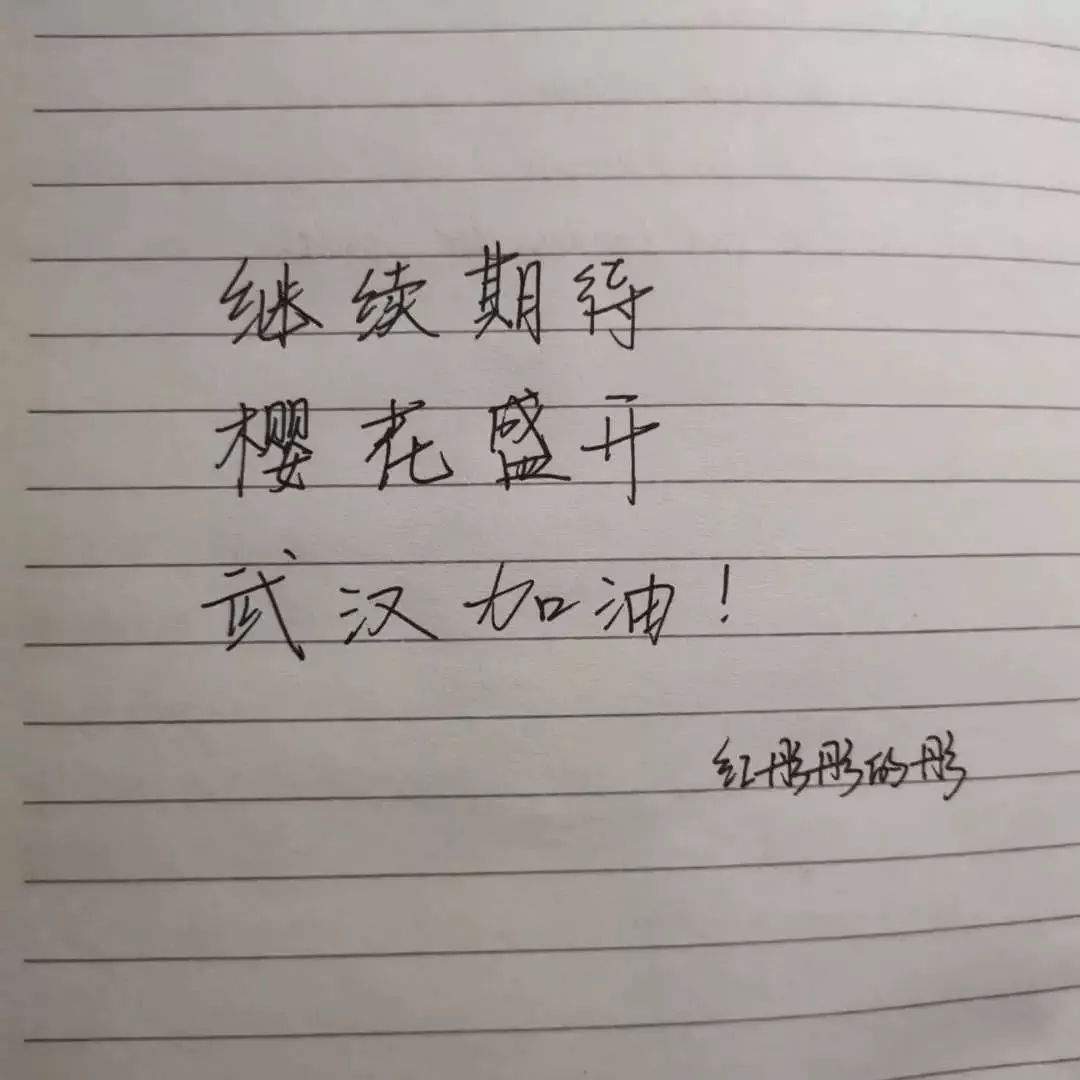 继续期待
樱花盛开
武汉加油！
红彤彤的彤